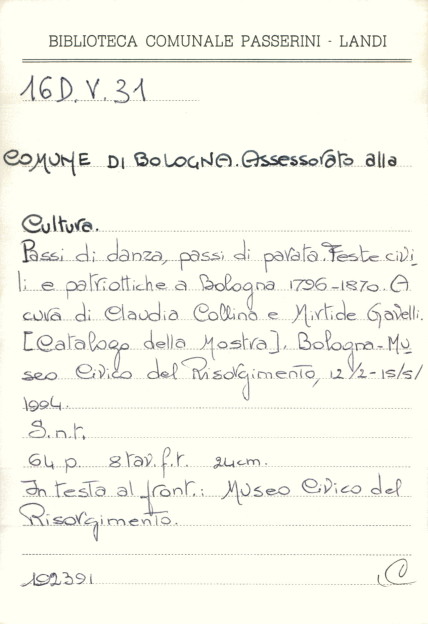 BIBLIOTECA COMUNALE PASSERINI - LANDI
16D.V.31
COMUNE DI BOLOGNA. Assessorato alla
Cultura.
Passi di danza, passi di parata. Feste civi_
li e patriottiche a Bologna 1796-1870. A
cura di Claudia Collina e Mirtide Gavelli.
[Catalogo della Mostra]. Bologna - Mu_
seo Civico del Risorgimento, 12/2-15/5/
1994.
S.n.t.
64 p. 8 tav.f.t. 24cm.
In testa al front.: Museo Civico del
Risorgimento.
102391 C